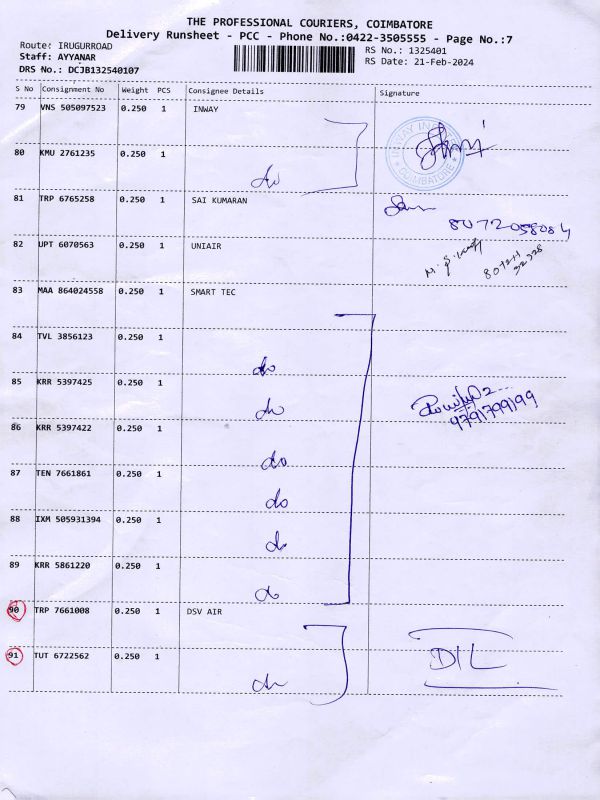 THE PROFESSIONAL COURIERS, COIMBATORE
Delivery Runsheet - PCC - Phone No.:0422-3505555 - Page No.:7
Route: IRUGURROAD
RS No.: 1325401
Staff: AYYANAR
RS Date: 21-Feb-2024
DRS No.: DCJB132540107
S No Consignment No Weight PCS Consignee Details Signature
79 VNS 505097523 0.250 1 INWAY
80 KMU 2761235 0.250 1
do
81 TRP 6765258 0.250 1 SAI KUMARAN
8072058084
82 UPT 6070563 0.250 1 UNIAIR
83 MAA 864024558 0.250 1 SMART TEC
84 TVL 3856123 0.250 1
do
85 KRR 5397425 0.250 1
do
9791799199
86 KRR 5397422 0.250 1
do
87 TEN 7661861 0.250 1
do
88 IXM 505931394 0.250 1
do
89 KRR 5861220 0.250 1
do
90 TRP 7661008 0.250 1 DSV AIR
91 TUT 6722562 0.250 1
DIL
do